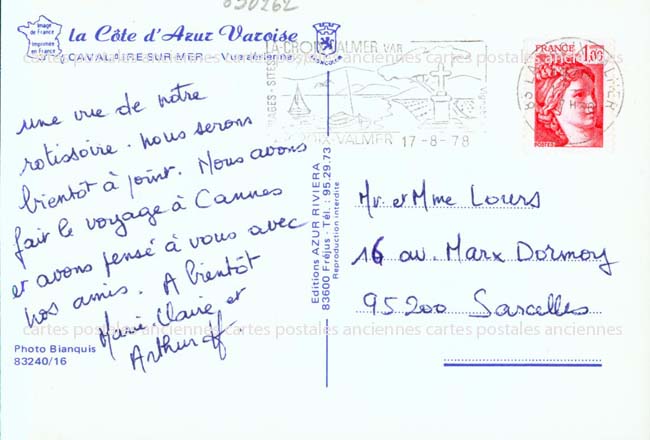 090262
Image
de France
Imprimée
en France
la Côte d'Azur Varoise
CAVALAIRE-SUR-MER - Vue aérienne
LA-CROIX-VALMER VAR
LA CROIX-VALMER 17-8-78
FRANCE 1,00
POSTES
une vue de notre
rotissoire. nous serons
bientôt à point. Nous avons
fait le voyage à Cannes
et avons pensé à vous avec
nos amis. A bientôt
Marie Claire et
Arthur
Photo Bianquis
83240/16
Editions AZUR RIVIERA
83600 Fréjus - Tél. : 95.29.73
Reproduction interdite
Mr. et Mme Lours
16 av. Marx Dormoy
95200 Sarcelles
cartes postales anciennes cartes postales anciennes cartes postales anciennes